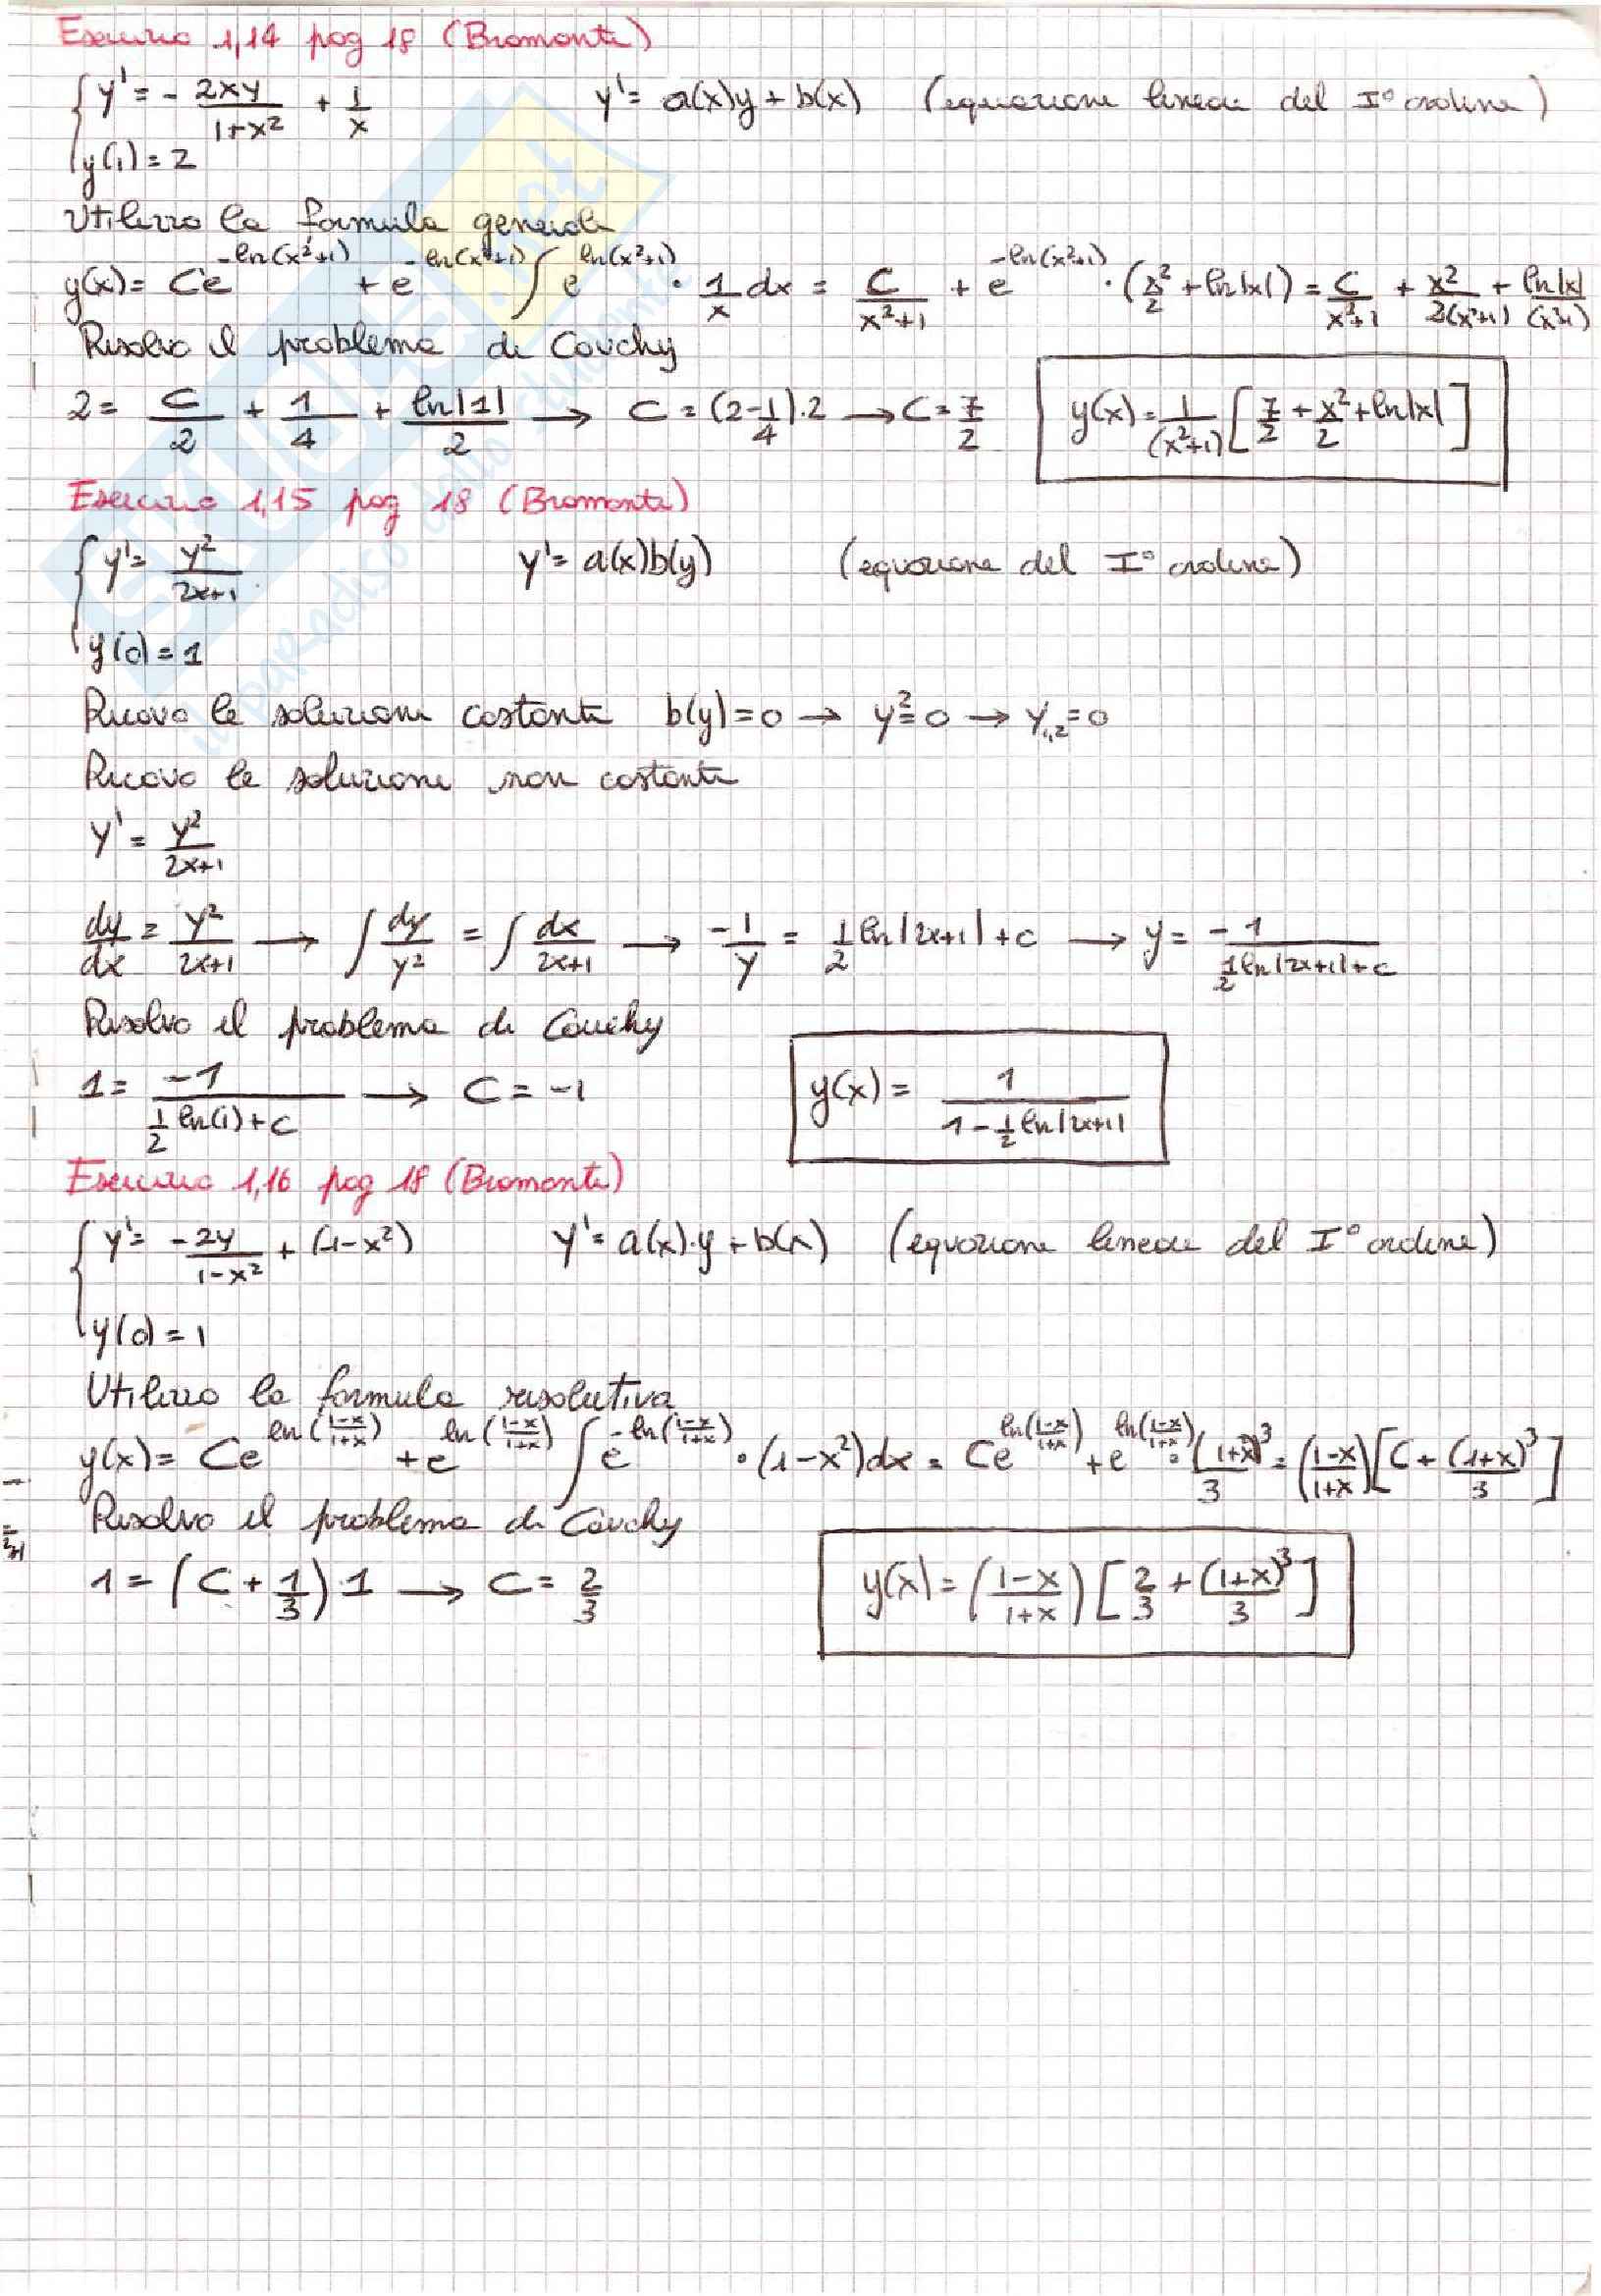 Esercizio 1,14 pag 18 (Bramanti)
{ y' = - 2xy/(1+x²) + 1/x    y' = a(x)y + b(x)    (equazione lineare del I° ordine)
y(1) = 2
Utilizzo la formula generale
y(x) = Ce^(-ln(x²+1)) + e^(-ln(x²+1)) ∫ e^(ln(x²+1)) · 1/x dx = C/(x²+1) + e^(-ln(x²+1)) · (x²/2 + ln|x|) = C/(x²+1) + x²/(2(x²+1)) + ln|x|/(x²+1)
Risolvo il problema di Cauchy
2 = C/2 + 1/4 + ln|1|/2 → C = (2 - 1/4)·2 → C = 7/2    y(x) = 1/(x²+1) [7/2 + x²/2 + ln|x|]
Esercizio 1,15 pag 18 (Bramanti)
{ y' = y²/(2x+1)    y' = a(x)b(y)    (equazione del I° ordine)
y(0) = 1
Ricavo le soluzioni costanti b(y) = 0 → y² = 0 → y₁,₂ = 0
Ricavo le soluzioni non costanti
y' = y²/(2x+1)
dy/dx = y²/(2x+1) → ∫ dy/y² = ∫ dx/(2x+1) → -1/y = 1/2 ln|2x+1| + c → y = -1/(1/2 ln|2x+1| + c)
Risolvo il problema di Cauchy
1 = -1/(1/2 ln(1) + c) → C = -1    y(x) = 1/(1 - 1/2 ln|2x+1|)
Esercizio 1,16 pag 18 (Bramanti)
{ y' = -2y/(1-x²) + (1-x²)    y' = a(x)·y + b(x)    (equazione lineare del I° ordine)
y(0) = 1
Utilizzo la formula risolutiva
y(x) = Ce^(ln((1-x)/(1+x))) + e^(ln((1-x)/(1+x))) ∫ e^(-ln((1-x)/(1+x))) · (1-x²)dx = Ce^(ln((1-x)/(1+x))) + e^(ln((1-x)/(1+x))) · (1+x)³/3 = ((1-x)/(1+x)) [C + (1+x)³/3]
Risolvo il problema di Cauchy
1 = (C + 1/3)·1 → C = 2/3    y(x) = ((1-x)/(1+x)) [2/3 + (1+x)³/3]
SKUOLA.net
il paradiso dello studente